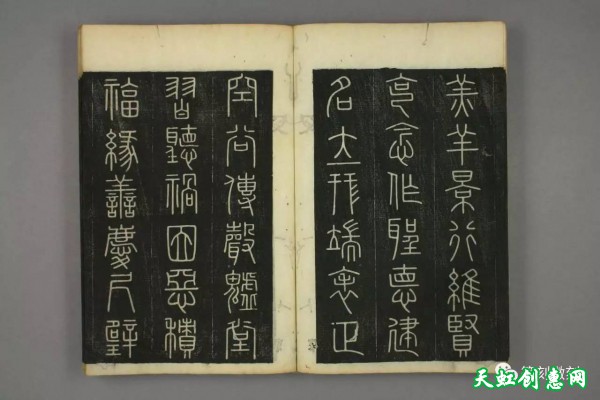 羔羊景行維賢
克念作聖德建
名立形端表正
空谷傳聲虛堂
習聽禍因惡積
福緣善慶尺璧
天虹创惠网